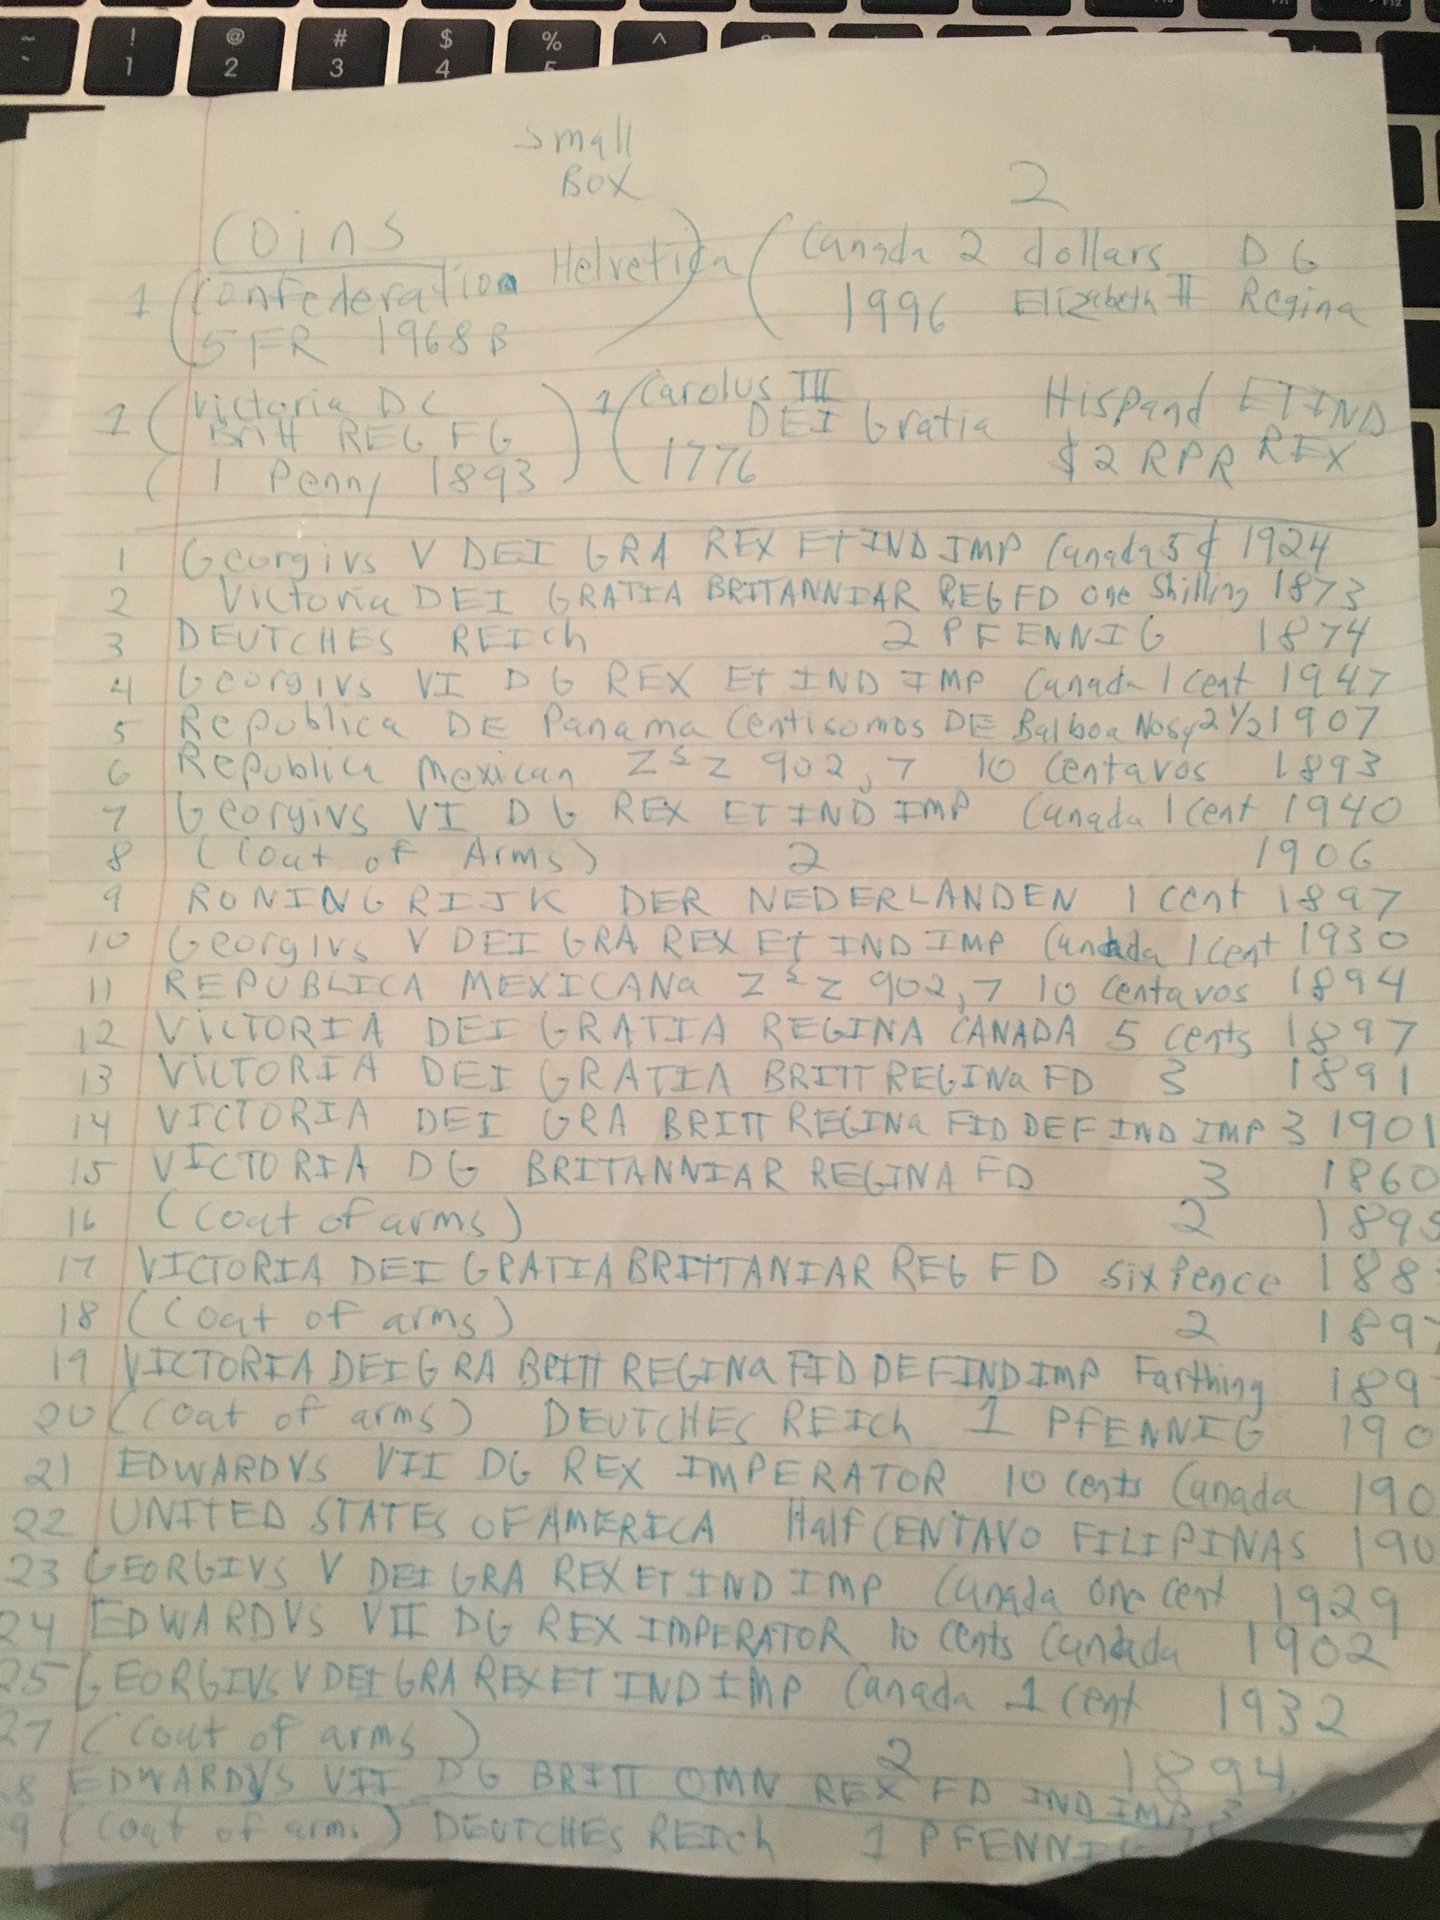 Small
BOX
2
Coins
1 (Confederation Helvetica)
5 FR 1968 B
(Canada 2 dollars D G
1996 Elizabeth II Regina
1 (Victoria DC
Britt REG FG
( 1 Penny 1893 )
1 (Carolus III
DEI Gratia Hispand ET IND
1776 $2 RPR REX
1 Georgivs V DEI GRA REX ET IND IMP Canada 5 ¢ 1924
2 Victoria DEI GRATIA BRITANNIAR REG FD one Shilling 1873
3 DEUTCHES REICh 2 PFENNIG 1874
4 Georgivs VI D G REX ET IND IMP Canada 1 cent 1947
5 Republica DE Panama Centisomos DE Balboa 2 1/2 1907
6 Republica Mexican Z S Z 902,7 10 Centavos 1893
7 Georgivs VI D G REX ET IND IMP Canada 1 cent 1940
8 (Coat of Arms) 2 1906
9 RONINGRIJK DER NEDERLANDEN 1 cent 1897
10 Georgivs V DEI GRA REX ET IND IMP Canada 1 cent 1930
11 REPUBLICA MEXICANa Z S Z 902,7 10 centavos 1894
12 VICTORIA DEI GRATIA REGINA CANADA 5 cents 1897
13 VICTORIA DEI GRATIA BRITT REGINa FD 3 1891
14 VICTORIA DEI GRA BRITT REGINa FID DEF IND IMP 3 1901
15 VICTORIA DG BRITANNIAR REGINA FD 3 1860
16 (Coat of arms) 2 1895
17 VICTORIA DEI GRATIA BRITTANIAR REG FD sixPence 188
18 (Coat of arms) 2 1897
19 VICTORIA DEI GRA BRITT REGINa FID DEF IND IMP Farthing 189
20 (Coat of arms) DEUTCHES REICh 1 PFENNIG 190
21 EDWARDVS VII DG REX IMPERATOR 10 cents Canada 190
22 UNITED STATES OF AMERICA Half CENTAVO FILIPINAS 190
23 GEORGIVS V DEI GRA REX ET IND IMP Canada one cent 1929
24 EDWARDVS VII DG REX IMPERATOR 10 cents Candada 1902
25 GEORGIVS V DEI GRA REX ET IND IMP Canada 1 cent 1932
27 (Coat of arms) 2 1894
8 EDWARDVS VII DG BRITT OMN REX FD IND IMP 3
9 (Coat of arms) DEUTCHES REICh 1 PFENNIG